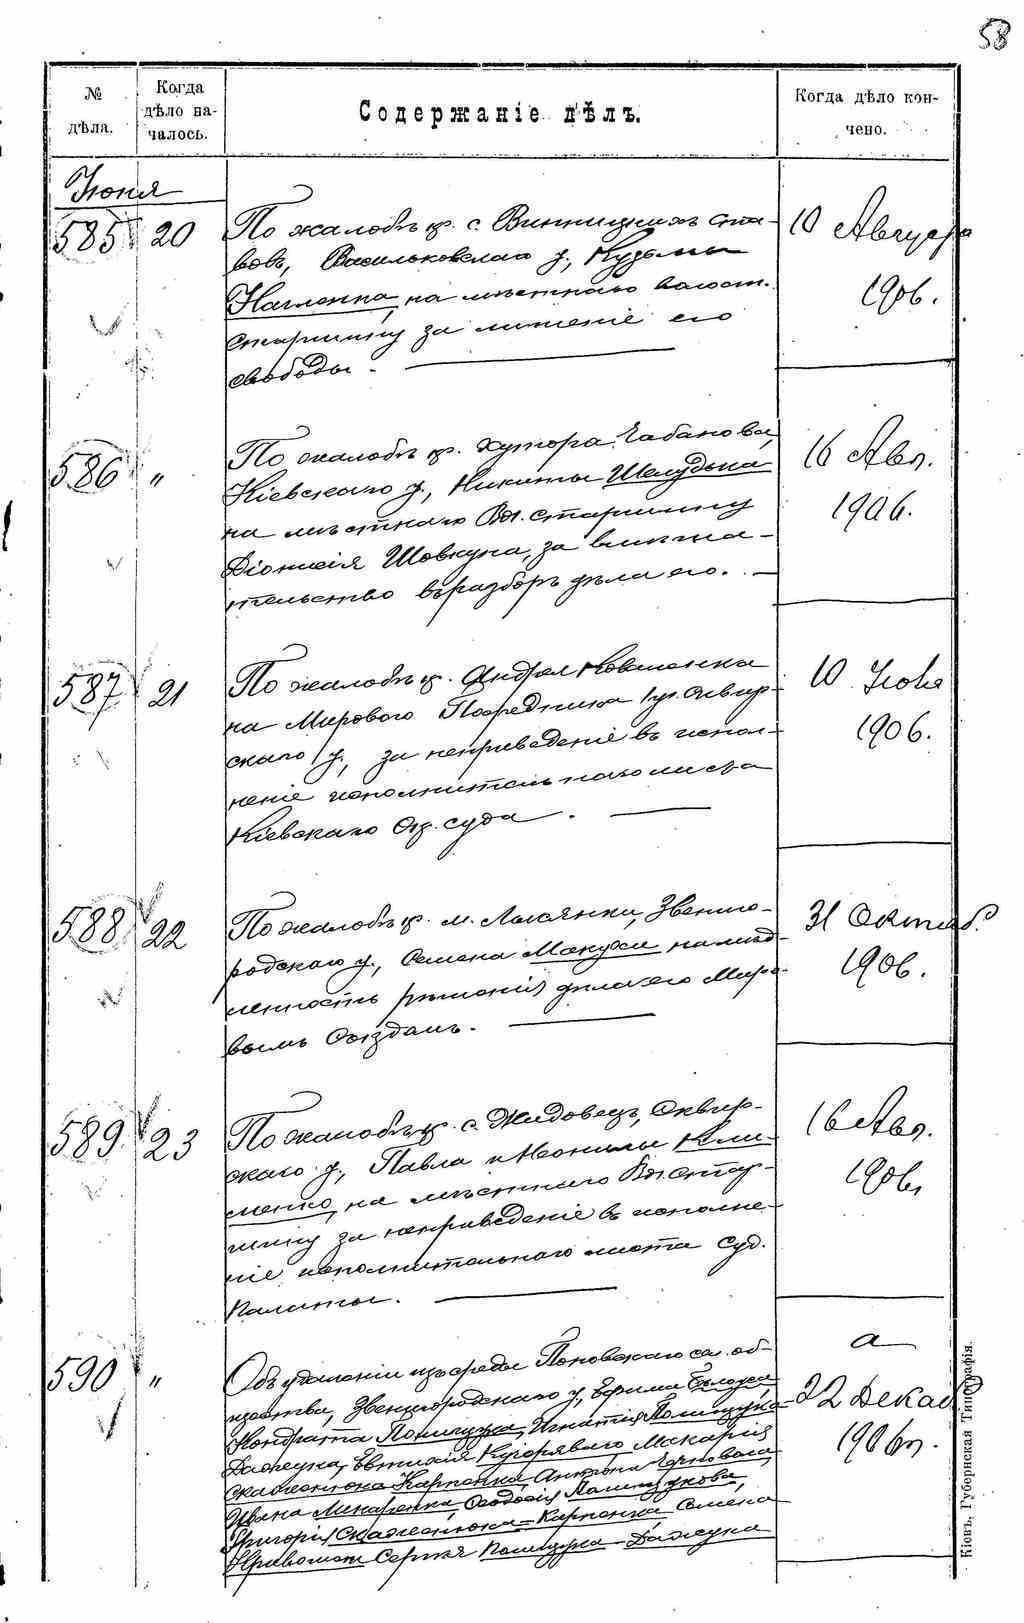 58
№ дѣла.
Когда дѣло началось.
Содержаніе дѣлъ.
Когда дѣло кончено.
Іюня
585 20 По жалобѣ кр. с. Винницкихъ Ста-
вовъ, Васильковскаго у., Кузьмы
на мѣстнаго волост.
старшину за лишеніе его
свободы.
10 Августа
1906.
586 " По жалобѣ кр. хутора Чабанова,
Кіевскаго у., Никиты Шелудька
на мѣстнаго Вол. старшину
Діонисія Шовкуна, за вмѣша-
тельство въ разборъ дѣла его.
16 Авг.
1906.
587 21 По жалобѣ кр. Андрея Коваленка
на Мирового Посредника 1 уч. Сквир-
скаго у., за неприведеніе въ испол-
неніе исполнительнаго листа
Кіевскаго Окр. суда.
10 Іюля
1906.
588 22 По жалобѣ кр. м. Лысянки, Звениго-
родскаго у., Семена на мед-
ленность рѣшенія дѣла его Миро-
вымъ Съѣздомъ.
31 Октяб.
1906.
589 23 По жалобѣ кр. с. Жидовецъ, Сквир-
скаго у., Павла и Неонилы Кли-
менко, на мѣстнаго Вол. стар-
шину за неприведеніе въ исполне-
ніе исполнительнаго листа Суд.
Палаты.
16 Авг.
1906.
590 " Объ удаленіи изъ среды Поповскаго сел. об-
щества, Звенигородскаго у., Ефрима
Кондрата Полищука, Игнатія Полищука
Дажука, Евтихія Макарія
Скаженюка Карпенка, Антона
Ивана Макаренка, Ѳеодосія Полищукова,
Григорія Скаженюка-Карпенка Семена
Сергѣя Полищука-Дажука
а
22 Декаб.
1906 г.
Кіевъ, Губернская Типографія.